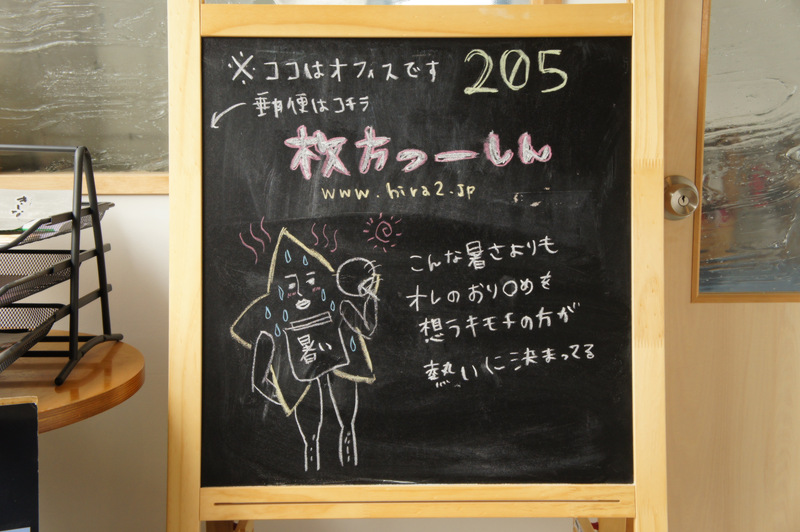 ※ココはオフィスです
205
郵便はコチラ
枚方つーしん
www.hira2.jp
こんな暑さよりも
オレのおり〇めを
想うキモチの方が
熱いに決まってる
暑い